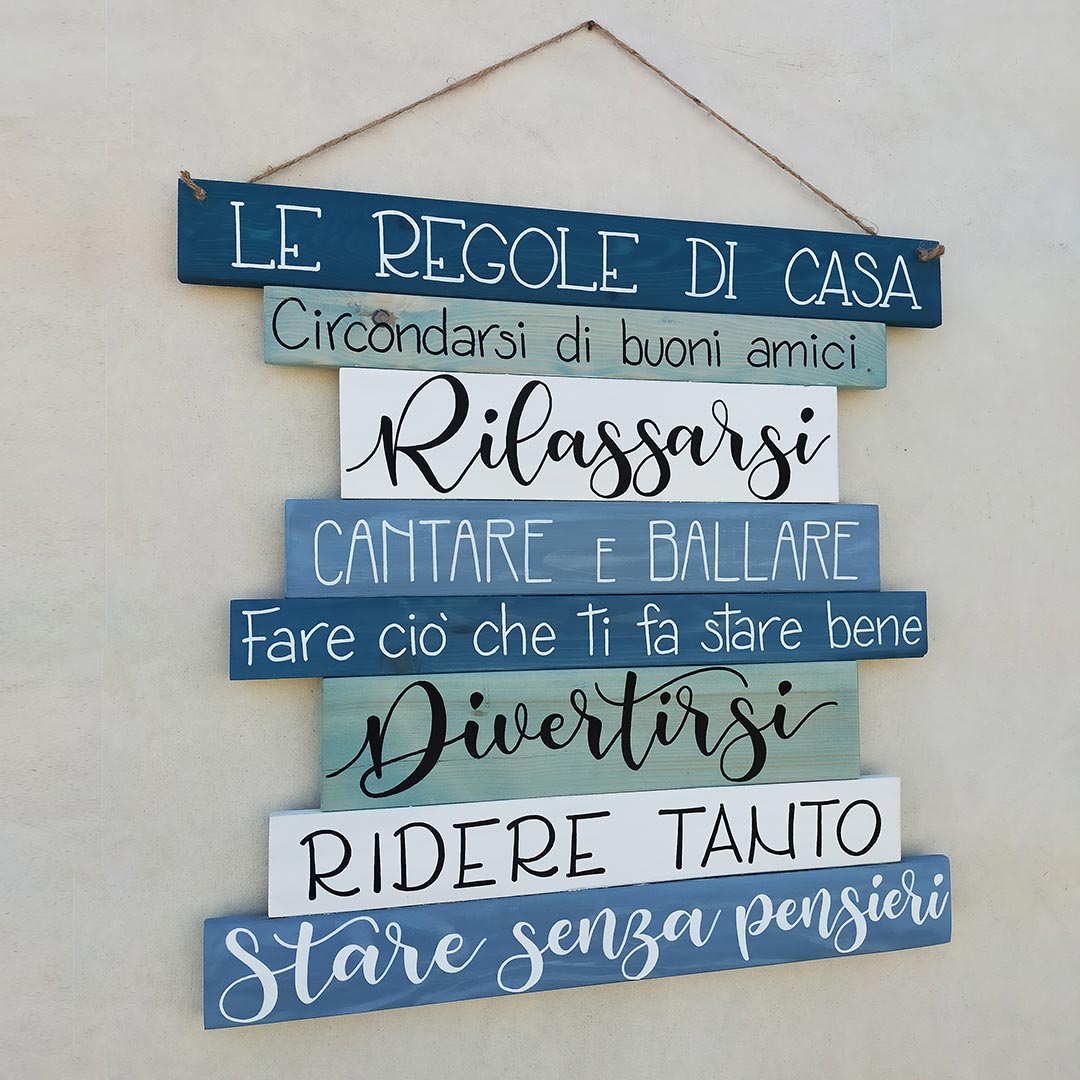 LE REGOLE DI CASA
Circondarsi di buoni amici.
Rilassarsi
CANTARE E BALLARE
Fare ciò che ti fa stare bene
Divertirsi
RIDERE TANTO
Stare senza pensieri